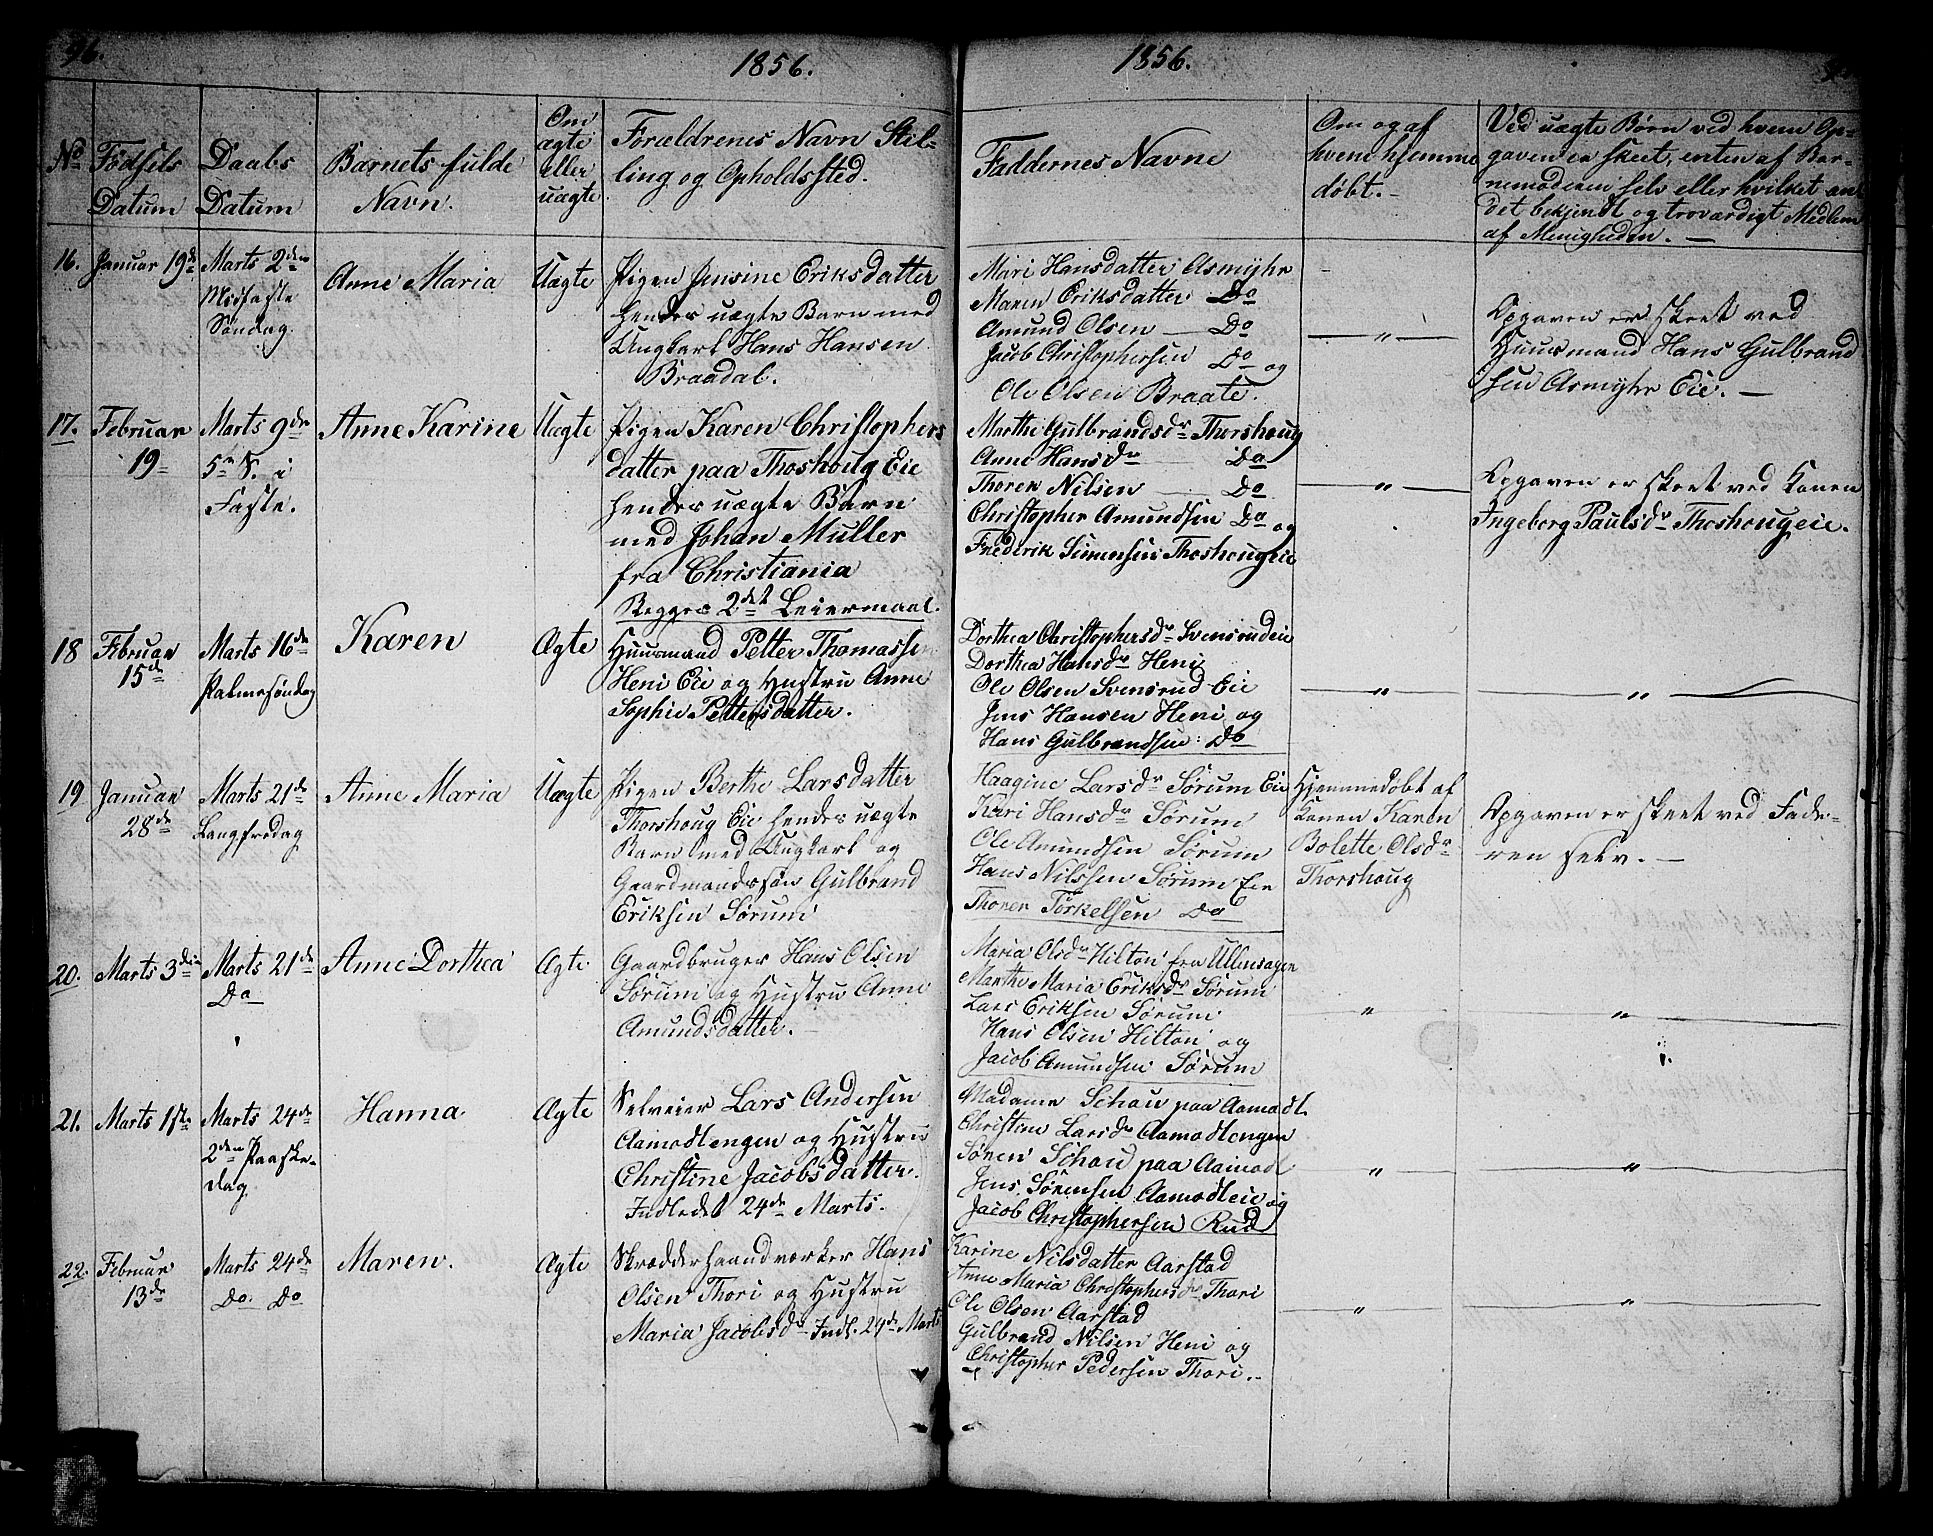 96.
1856.
No
Fødsels
Datum
Daabs
Datum
Barnets fulde
Navn.
Om
ægte
eller
uægte
Forældrenes Navn Stil-
ling og Opholdssted.
16.
Januar 19de
Marts 2den
Midfaste
Søndag.
Anne Maria
Uægte
Pigen Jensine Eriksdatter
hendes uægte Barn med
Ungkarl Hans Hansen
Braadal.
17.
Februar
19
Marts 9de
5te S. i
Faste.
Anne Karine
Uægte
Pigen Karen Christophers
datter paa Thoshoug Eie
hendes uægte Barn
med Johan Muller
fra Christiania
Begges 2det Leiermaal.
18
Februar
15de
Marts 16de
Palmesøndag
Karen
Ægte
Huusmand Petter Thomassen
Heni Eie og Hustru Anne
Sophie Pettersdatter.
19
Januar
28de
Marts 21de
Langfredag
Anne Maria
Uægte
Pigen Berthe Larsdatter
Thorshoug Eie hendes uægte
Barn med Ungkarl og
Gaardmandssøn Gulbrand
Eriksen Sørum
20.
Marts 3die
Marts 21de
Do
Anne Dorthea
Ægte
Gaardbruger Hans Olsen
Sørum og Hustru Anne
Amundsdatter.
21.
Marts 1ste
Marts 24de
2den Paaske-
dag
Hanna
Ægte
Selveier Lars Andersen
Aamodtengen og Hustru
Christine Jacobsdatter.
Indledet 24de Marts.
22.
Februar
13de
Marts 24de
Do Do
Maren.
Ægte
Skrædderhaandværker Hans
Olsen Thori og Hustru
Maria Jacobsdr Indl. 24de Marts
1856.
Faddernes Navne
Om og af
hvem hjemme
døbt.
Ved uægte Børn ved hvem Op-
gaven er skeet, enten af Bar-
nemoderen selv eller hvilket an
det bekjendt og troværdigt Medlem
af Menigheden. —
Mari Hansdatter Asmyhr
Maren Eriksdatter Do
Amund Olsen — Do
Jacob Christophersen Do og
Ole Olsen Braate.
— " —
Opgaven er skeet ved
Huusmand Hans Gulbrand
sen Asmyhr Eie. —
Marthe Gulbrandsdr Thorshoug
Anne Hansdr Do
Thorer Nilsen — Do
Christopher Amundsen Do og
Frederik Simensen Thoshougeie
— " —
Opgaven er skeet ved Konen
Ingeborg Paulsdr Thoshougeie.
Dorthea Christophersdr Svensrudeie
Dorthea Hansdr Heni
Ole Olsen Svensrud Eie
Jens Hansen Heni og
Hans Gulbrandsen Do
— " —
— " —
Haagine Larsdr Sørum Eie
Kari Hansdr Sørum
Ole Amundsen Sørum
Hans Nilssen Sørum Eie
Thorer Torkelsen Do
Hjemmedøbt af
Konen Karen
Bolette Olsdr
Thorshoug
Opgaven er skeet ved Fade-
ren selv. —
Maria Olsdr Hilton fra Ullensager
Marthe Maria Eriksdr Sørum
Lars Eriksen Sørum
Hans Olsen Hilton og
Jacob Amundsen Sørum
— " —
— " —
Madame Schou paa Aamodt
Christine Larsdr Aamodtengen
Søren Schou paa Aamodt
Jens Sørensen Aamodteie og
Jacob Christophersen Rud
— " —
— " —
Karine Nilsdatter Aarstad
Anne Maria Christophersdr Thori
Ole Olsen Aarstad
Gulbrand Nilsen Heni og
Christopher Pedersen Thori.
— " —
— " —